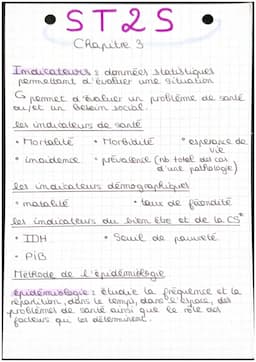 ST2S
Chapitre 3
Indicateurs : données statistiques
permettant d'évaluer une situation
↳ permet d'évaluer un problème de santé
ou/et un besoin social.
les indicateurs de santé
• Mortalité • Morbidité • espérance de
vie
• incidence • prévalence (nb total des cas
d'une pathologie)
les indicateurs démographiques
• natalité • taux de fécondité
les indicateurs du bien être et de la CS°
• IDH • Seuil de pauvreté
• PiB
Méthode de l'épidémiologie
épidémiologie : étudie la fréquence et la
répartition, dans le temps, dans l'espace, des
problèmes de santé ainsi que le rôle des
facteurs qui les déterminent.